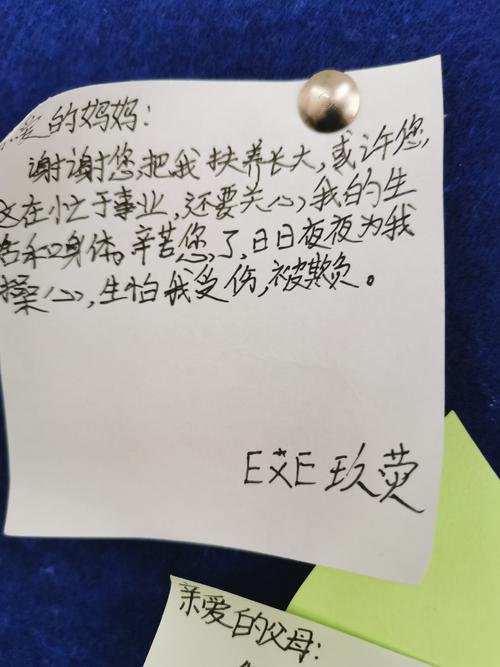 爱的妈妈:
谢谢您,把我扶养长大,或许您,
这在忙于事业,还要关心,我的生
活和身体。辛苦您,了,日日夜夜为我
操心,生怕我受伤,被欺负。
EXE 玖荧
亲爱的父母: